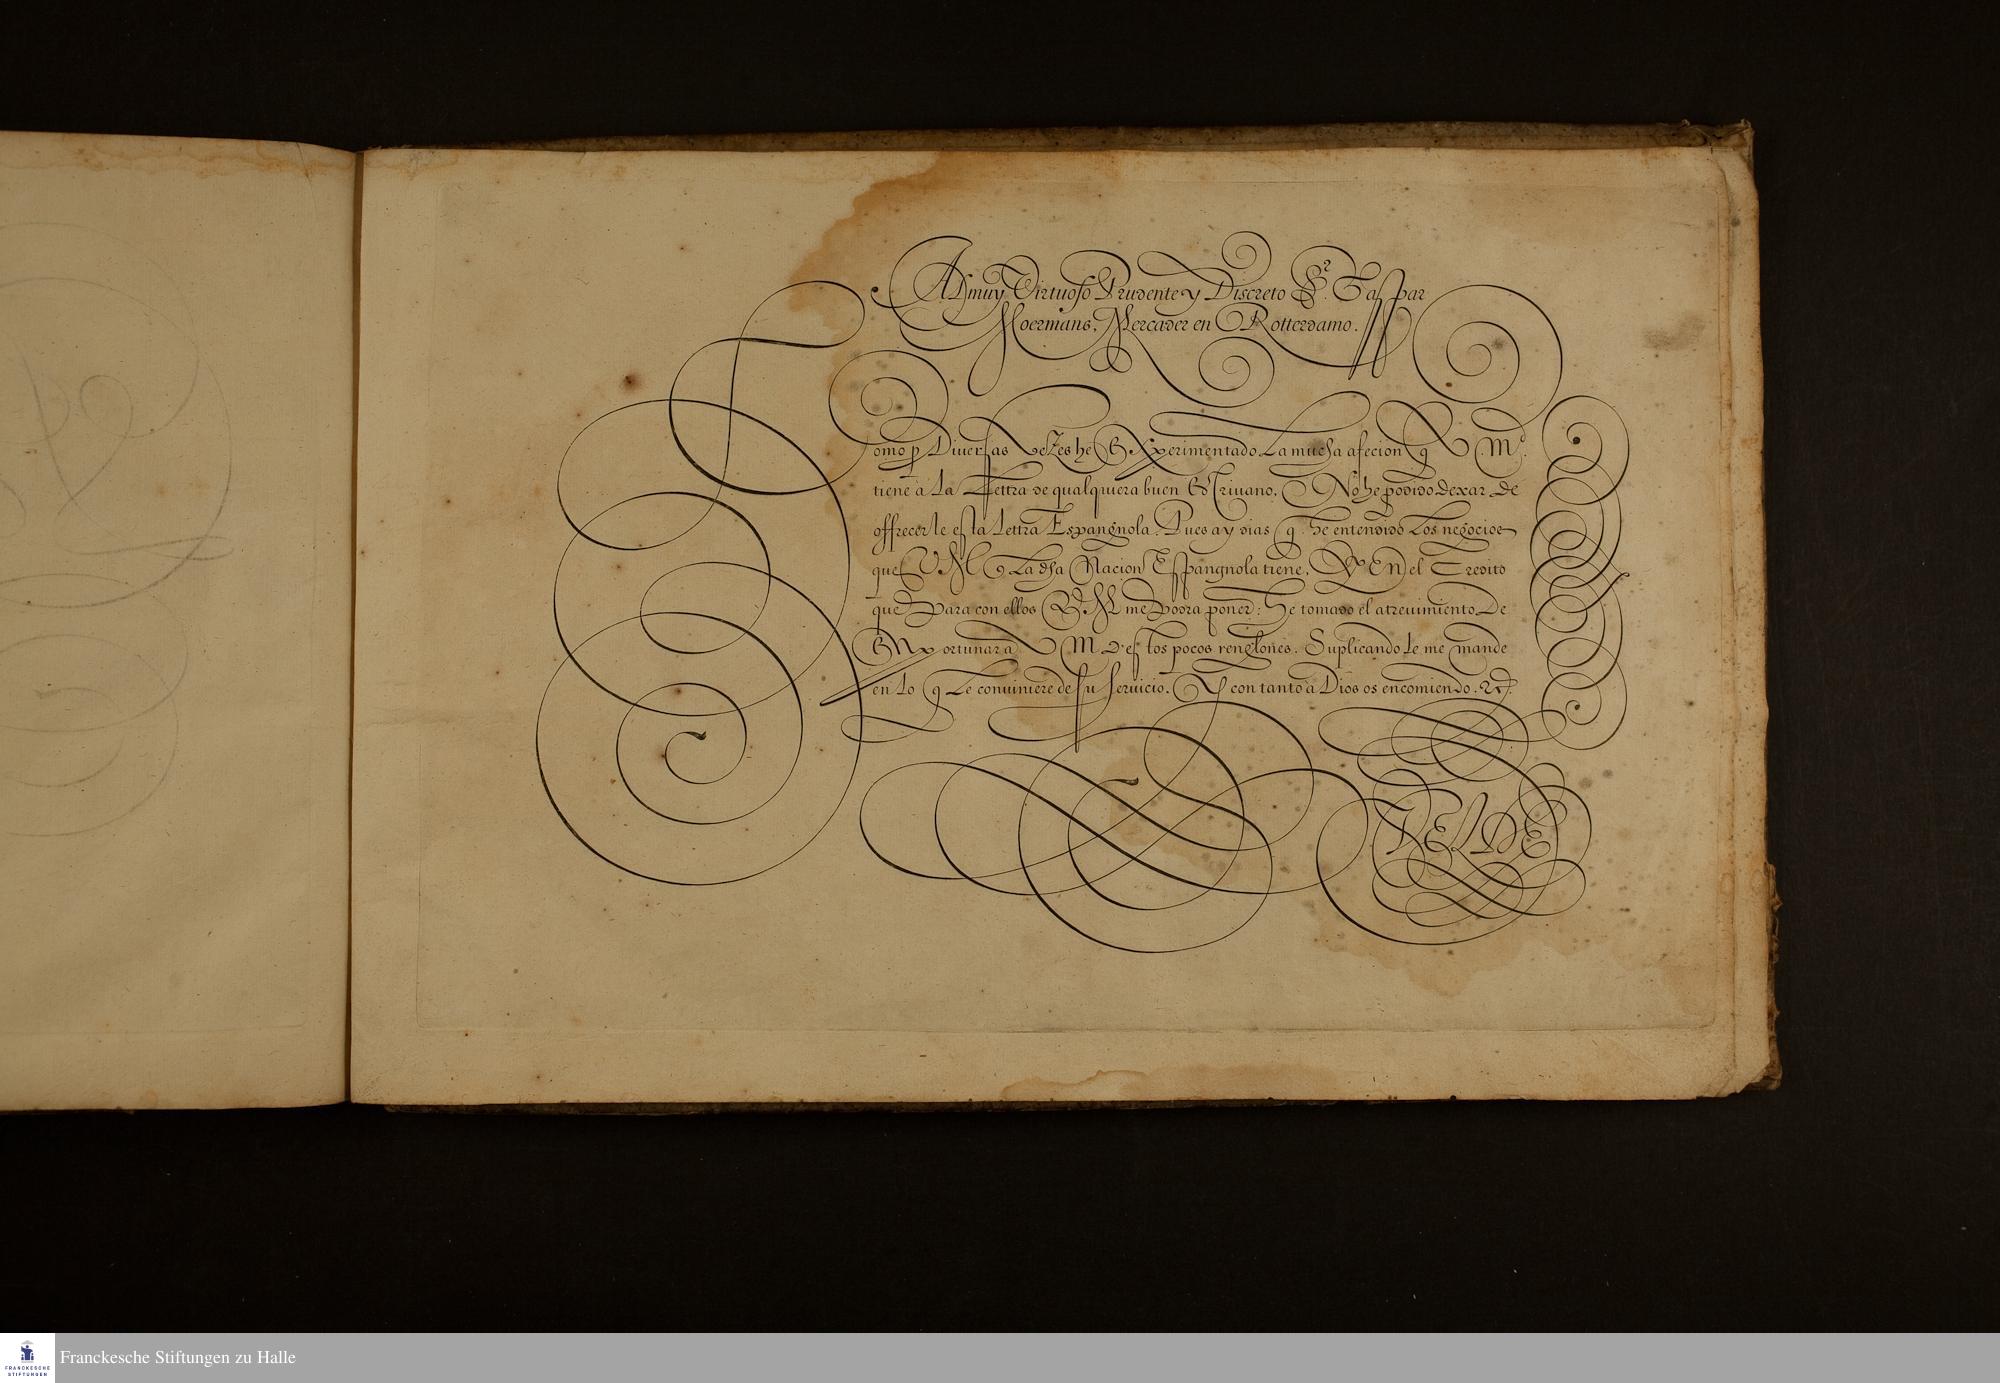 Al muy Virtuoso Prudente y Discreto Sr. Gaspar
Moermans, Mercader en Rotterdamo.
Como p Diversas vezes he Experimentado La mucha afecion q V. M.
tiene a La Lettra de qualquiera buen Escriuano, No he podido dexar de
offrecerle esta Lettra Espangnola. Pues ay dias q he entendido Los negocios
que V M La dha Nacion Espangnola tiene, Y En el Credito
que Para con ellos V. M me podra poner: He tomado el atreuimiento De
Inportunar a V M d'estos pocos renglones. Suplicando le me mande
en Lo q Le conuiniere de su seruicio. Y con tanto a Dios os encomiendo. &c.
VELDE
Franckesche Stiftungen zu Halle
FRANCKESCHE
STIFTUNGEN